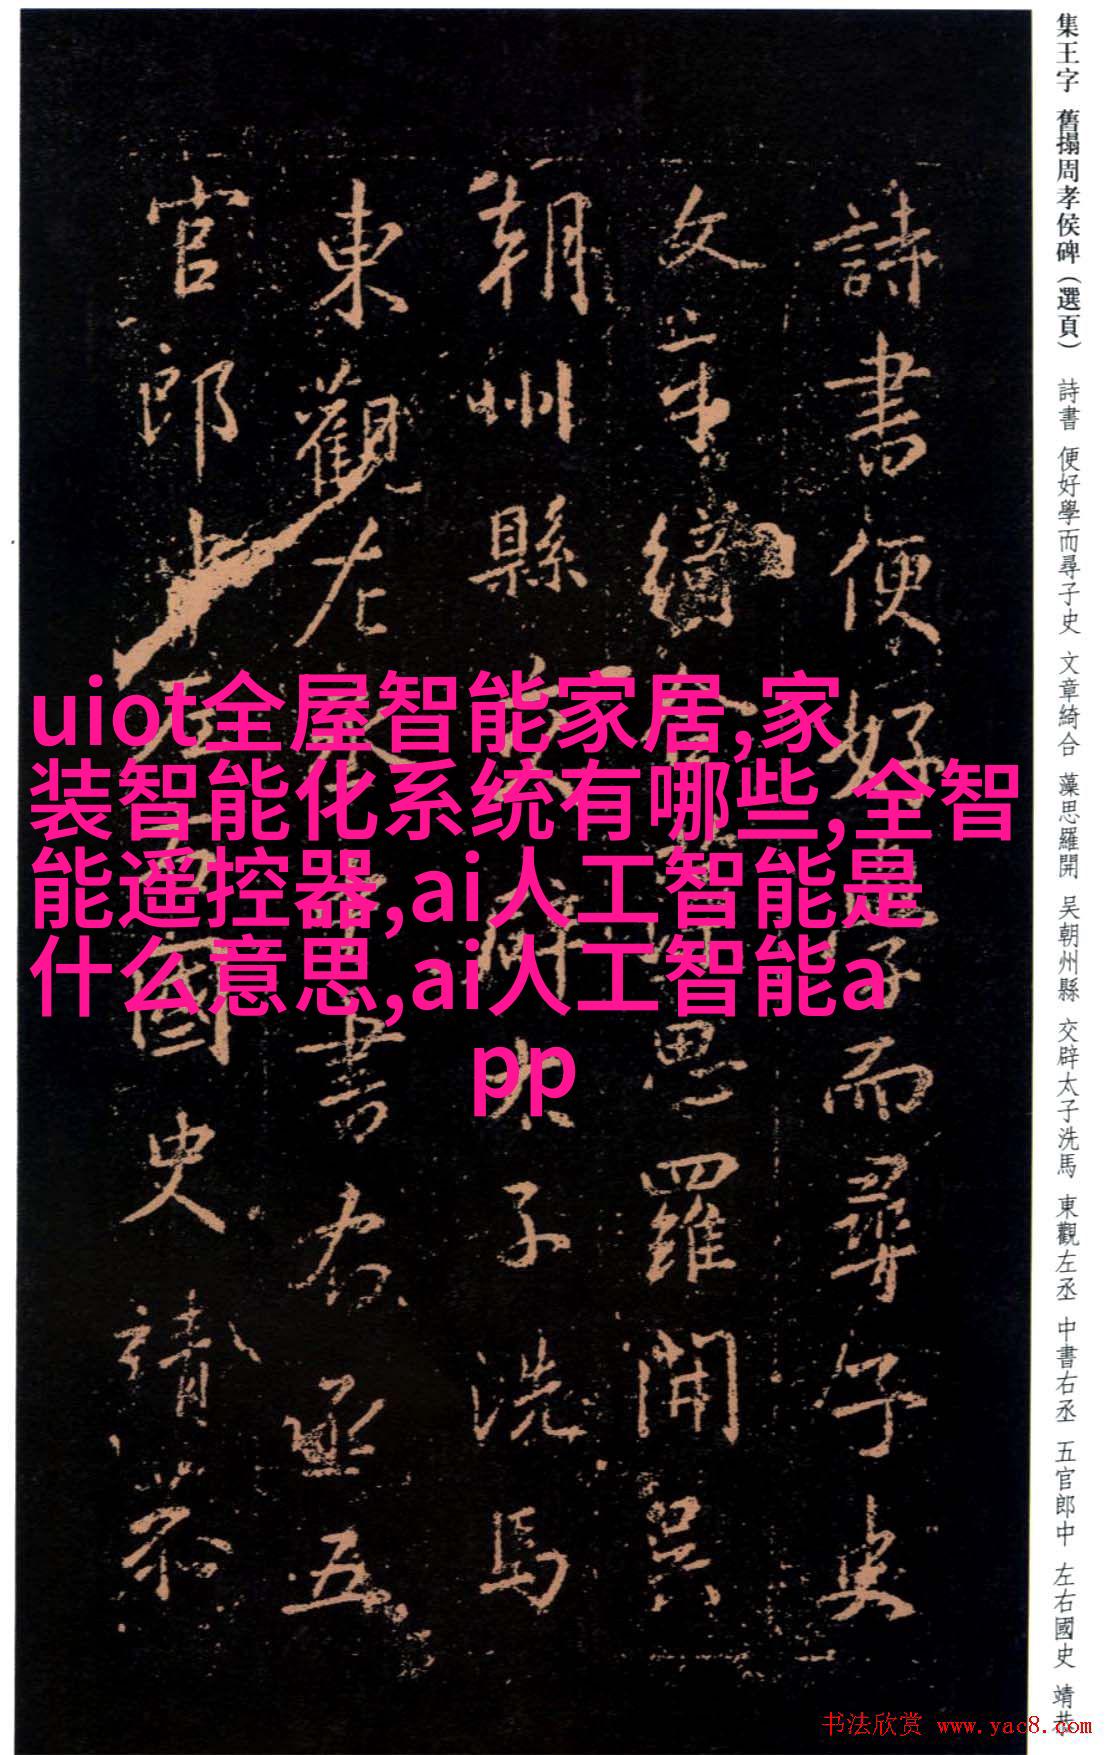 集王字 舊搨周孝侯碑(選頁) 詩書 便好學而尋子史 文章綺合 藻思羅開 吴朝州縣 交辟太子洗馬 東觀左丞 中書右丞 五官郎中 左右國史 靖恭
詩書便好學而尋子史
文章綺合藻思羅開吳
朝州縣交辟太子洗馬
東觀左丞中書右丞五
官郎中左右國史靖恭
uiot全屋智能家居,家
装智能化系统有哪些,全智
能遥控器,ai人工智能是
什么意思,ai人工智能a
pp
书法欣赏 www.yac8.com